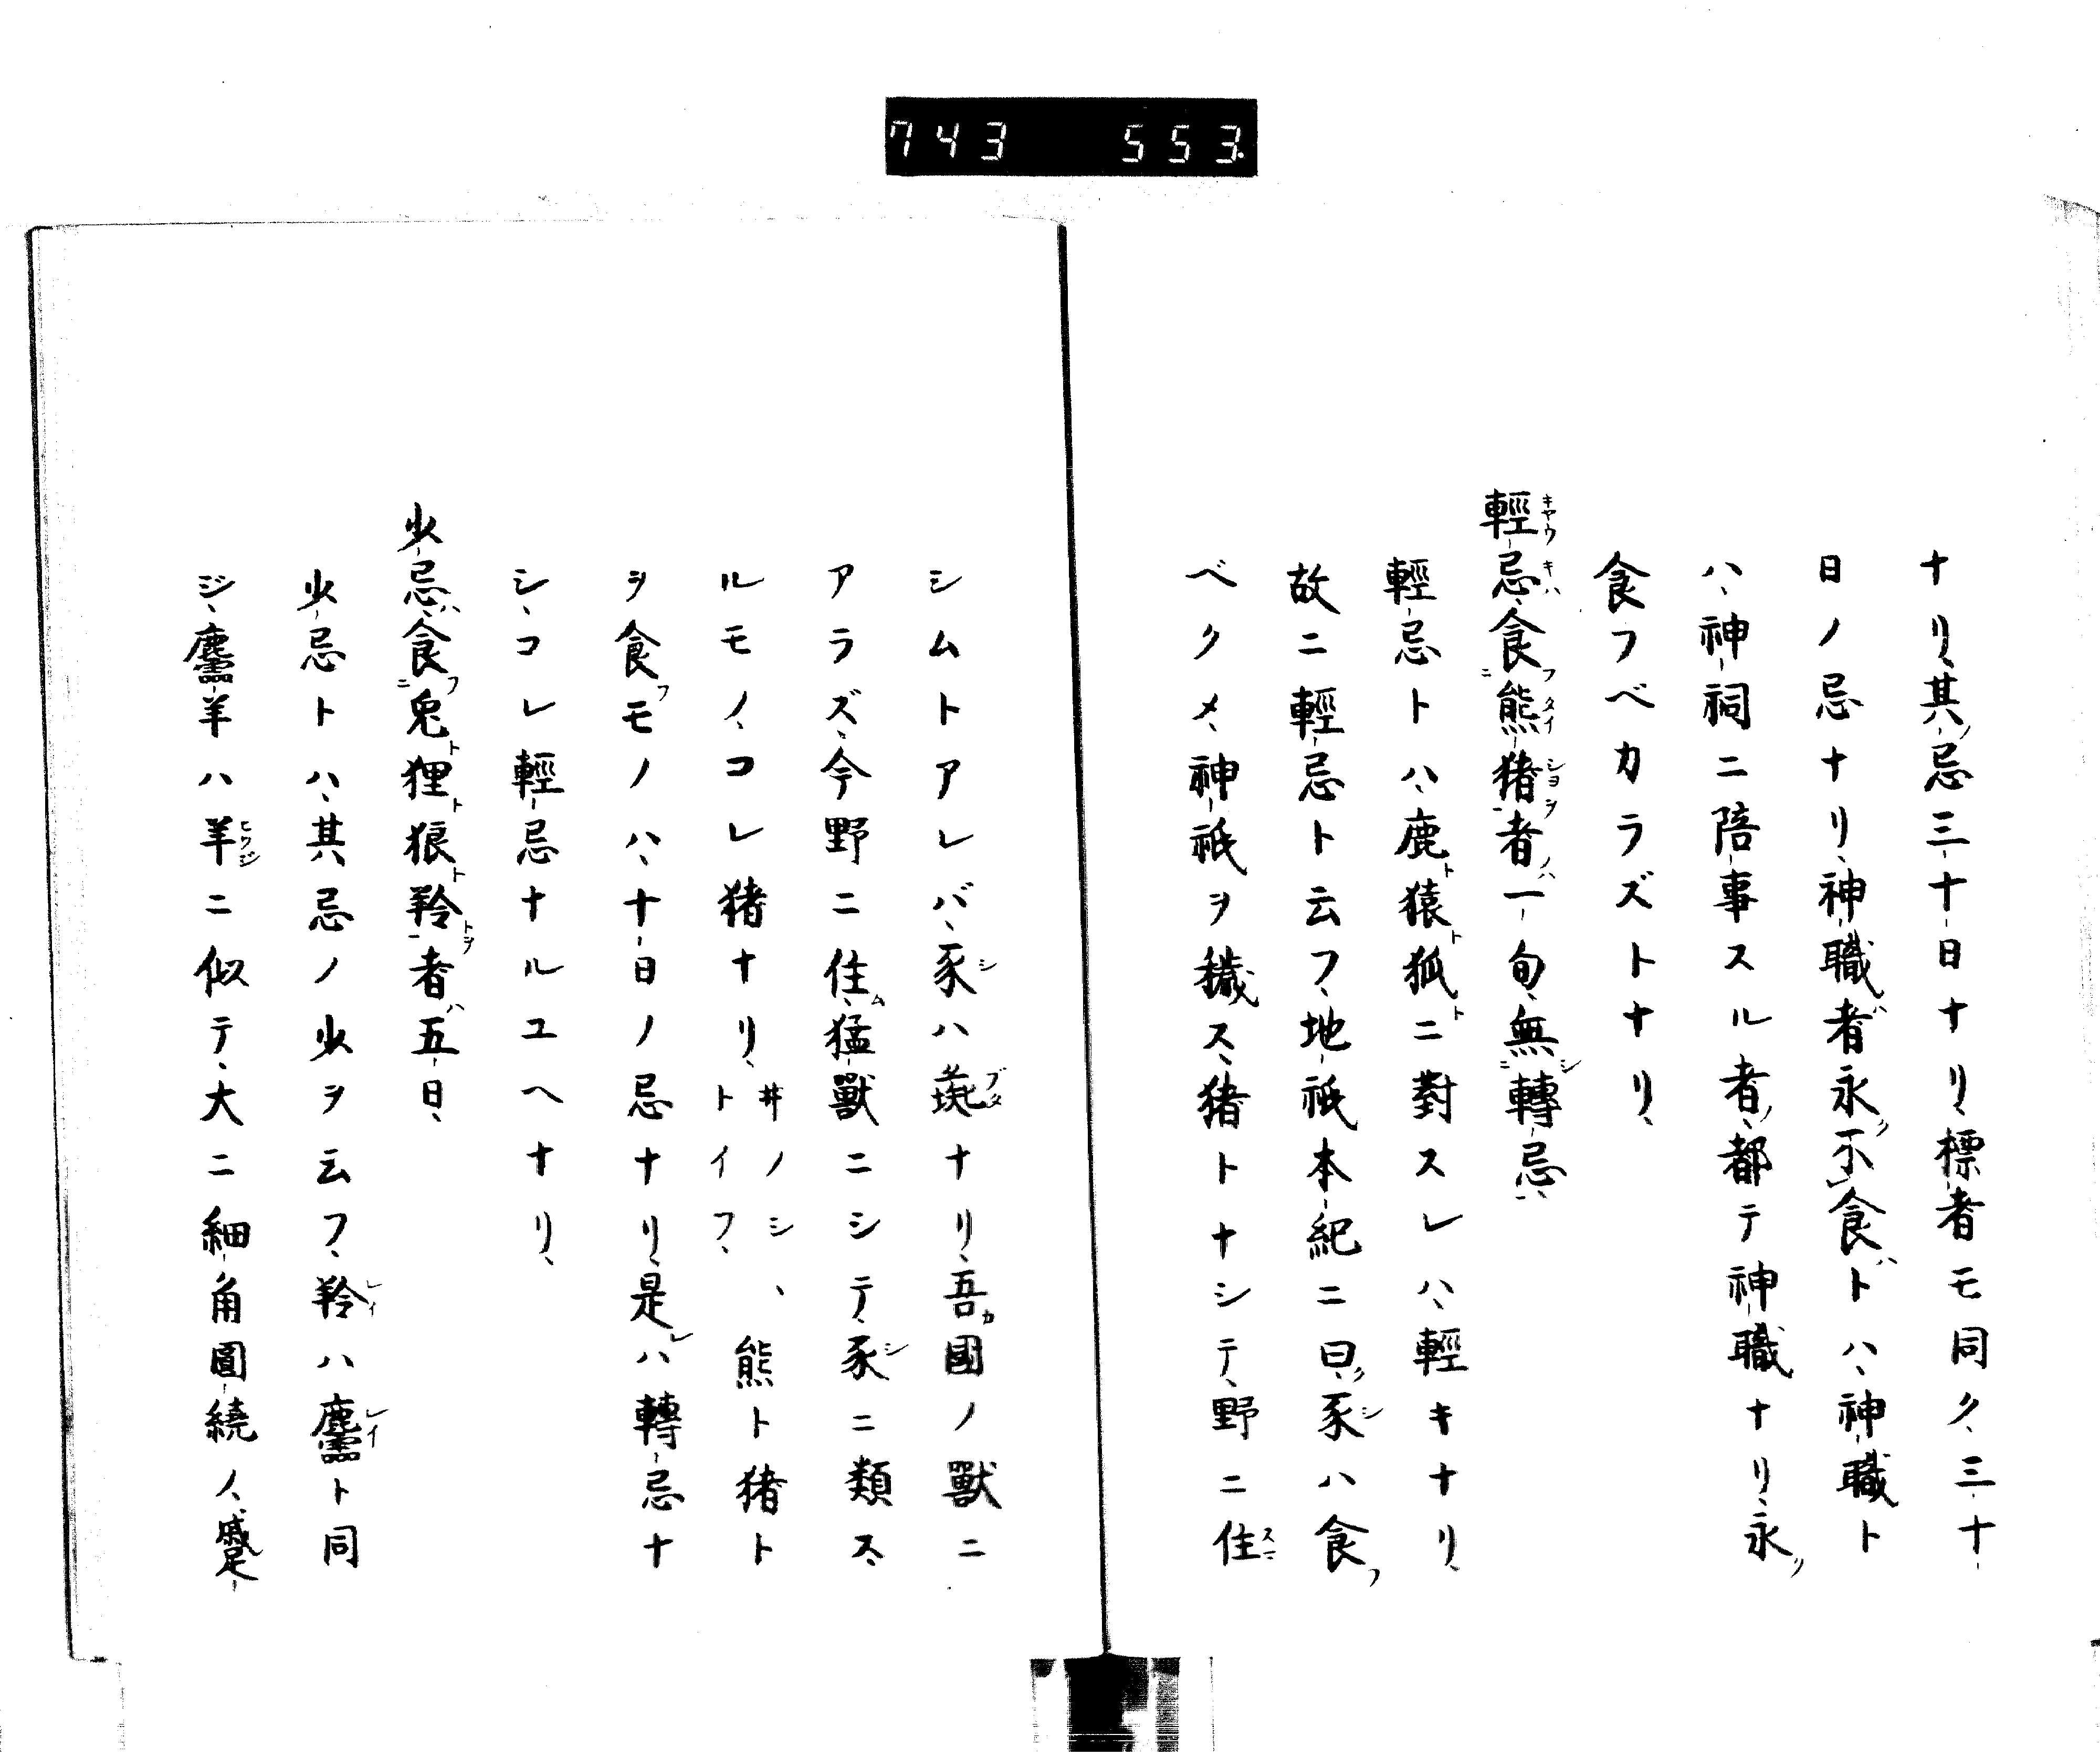 743 553.
ナリ、其ノ忌三十日ナリ、標者モ同ク、三十
日ノ忌ナリ、神職者ハ永ク不食トハ、神職ト
ハ、神祠ニ陪事スル者ノ、都テ神職ナリ、永ク
食フベカラズトナリ、
輕忌、食熊猪者一旬、無轉忌、
輕忌トハ、鹿ト猿ト狐トニ對スレハ、輕キナリ、
故ニ輕忌ト云フ、地祇本紀ニ曰ク、豕ハ食フ
ベクメ、神祇ヲ穢ス、猪トナシテ、野ニ住
シムトアレバ、豕ハナリ、吾カ國ノ獸ニ
アラズ、今野ニ住ム、猛獸ニシテ、豕ニ類ス、
ルモノ、コレ猪ナリ、井ノシヽトイフ、熊ト猪ト
ヲ食フモノハ、十日ノ忌ナリ、是レハ轉忌ナ
シ、コレ輕忌ナルユヘナリ、
少忌ハ、食フ兎ト狸ト狼ト羚トヲ者ハ五日、
少忌トハ、其忌ノ少ヲ云フ、羚ハ麢ト同
ジ、麢羊ハ羊ニ似テ、大ニ細角圓繞ノ、蹙